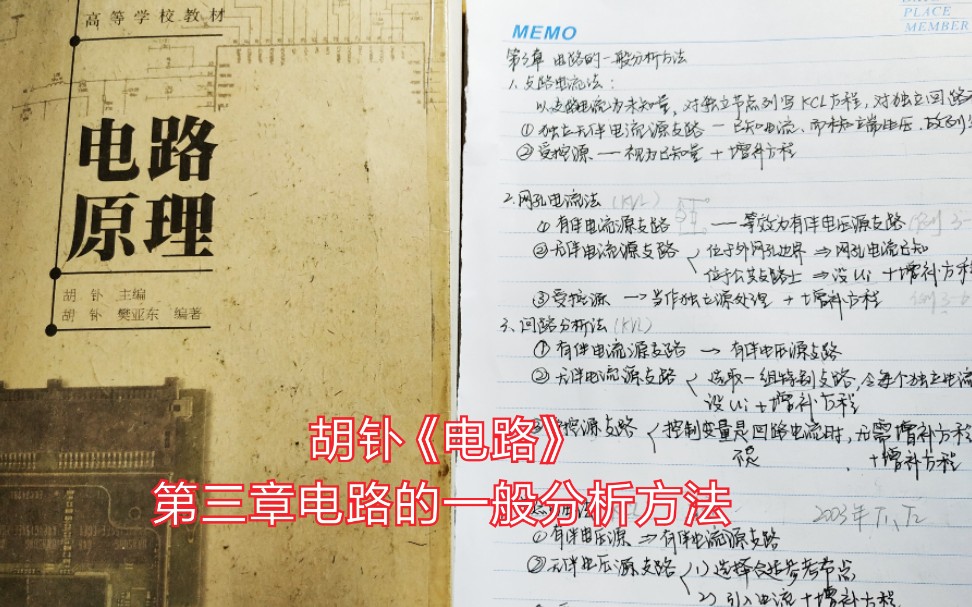 高等学校教材
电路
原理
胡钋 主编
胡钋 樊亚东 编著
PLACE
MEMBER
MEMO
第3章 电路的一般分析方法
1、支路电流法：
以支路电流为未知量，对独立节点列写KCL方程，对独立回路
①独立无伴电流源支路 — 已知电流，而未知端电压，故列
②受控源 — 视为已知量 + 增补方程
2.网孔电流法（KVL）
①有伴电流源支路 — 等效为有伴电压源支路
②无伴电流源支路 位于外网孔边界 ⇒ 网孔电流已知
位于公共支路上 ⇒ 设Ui + 增补方程
③受控源 → 当作独立源处理 + 增补方程
3、回路分析法（KVL）
①有伴电流源支路 → 有伴电压源支路
②无伴电流源支路 选取一组特别支路，令每个独立电流
设Ui + 增补方程
控源支路 控制变量是回路电流时，无需增补方程
不是 + 增补方程
胡钋《电路》
第三章电路的一般分析方法
2003年 T1、T2
①有伴电压源 ⇒ 有伴电流源支路
②无伴电压源支路 (1) 选择合适参考节点
2) 引入电流 + 增补方程